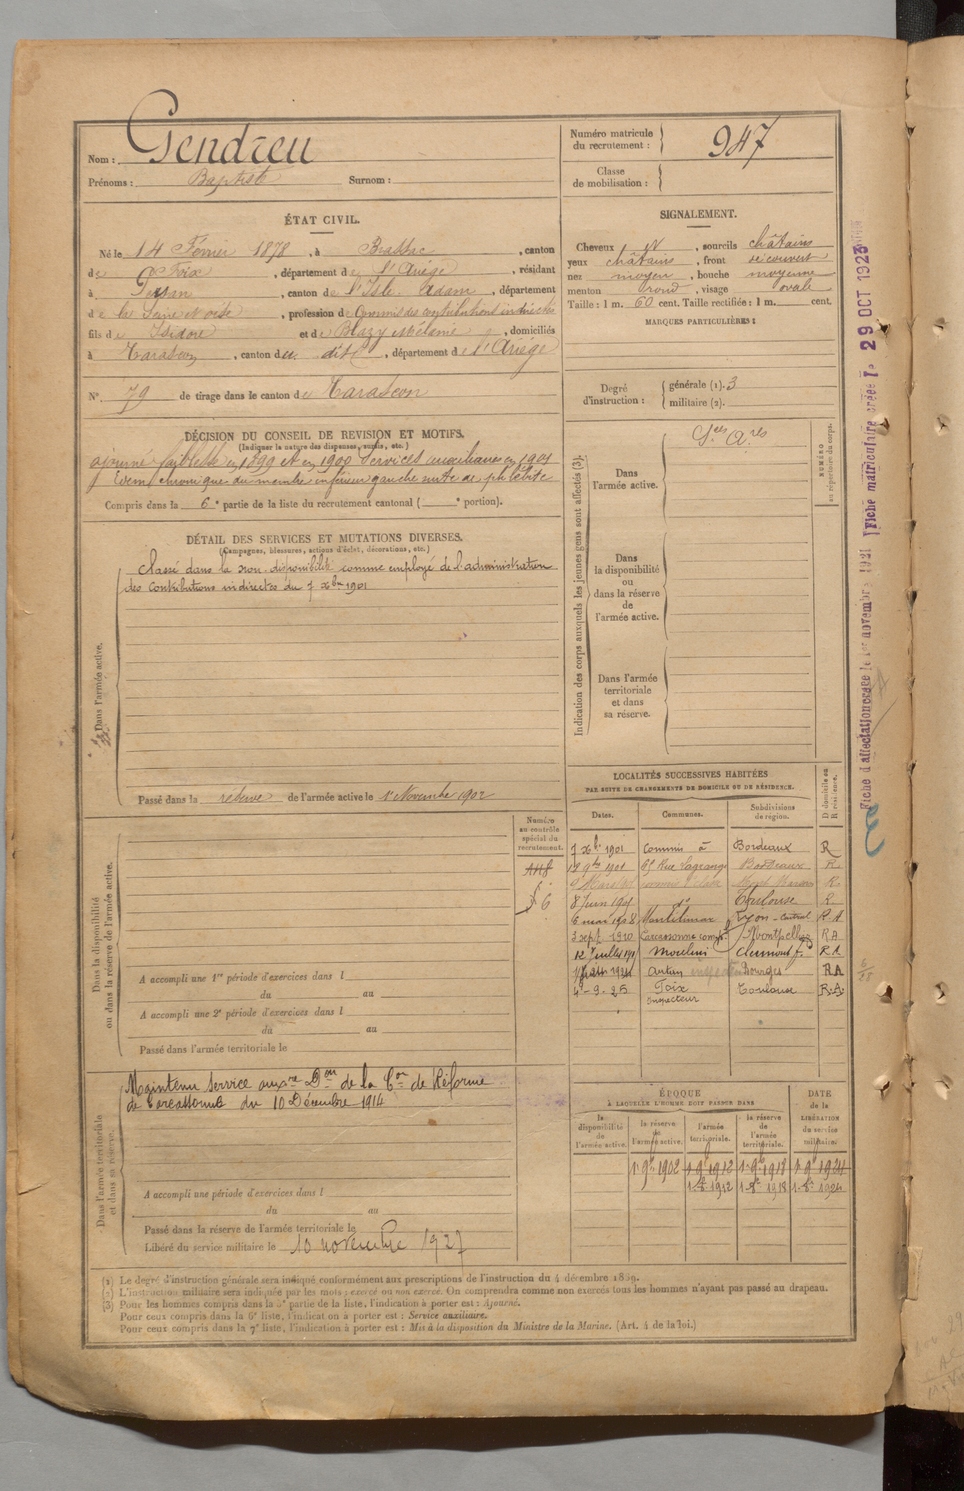 Nom : Gendreu
Prénoms : Baptiste Surnom :
Numéro matricule du recrutement : 947
Classe de mobilisation :
ÉTAT CIVIL.
Né le 14 Février 1878, à Brassac, canton
de Foix, département de l'Ariège, résidant
à Persan, canton de l'Isle Adam, département
de la Seine et oise, profession de Commis des contributions indirectes
fils de Isidore et de Blazy Mélanie, domiciliés
à Tarascon, canton du dit, département de l'Ariège
N° 79 de tirage dans le canton de Tarascon
SIGNALEMENT.
Cheveux N, sourcils châtains
yeux châtains, front découvert
nez moyen, bouche moyenne
menton rond, visage ovale
Taille : 1 m. 60 cent. Taille rectifiée : 1 m. cent.
MARQUES PARTICULIÈRES :
Degré d'instruction : générale (1). 3
militaire (2).
DÉCISION DU CONSEIL DE REVISION ET MOTIFS.
(Indiquer la nature des dispenses, sursis, etc.)
ajourné faiblesse en 1899 et en 1900 Services auxiliaires en 1901
Œdème chronique du membre inférieur gauche suite de phlébite
Compris dans la 6e partie de la liste du recrutement cantonal ( e portion).
DÉTAIL DES SERVICES ET MUTATIONS DIVERSES.
(Campagnes, blessures, actions d'éclat, décorations, etc.)
Dans l'armée active.
Classé dans la non-disponibilité comme employé de l'administration
des Contributions indirectes du 7 Xbre 1901
Passé dans la réserve de l'armée active le 1er Novembre 1902
Indication des corps auxquels les jeunes gens sont affectés (3).
NUMÉRO au répertoire du corps.
Dans l'armée active.
Sces Ares
Dans la disponibilité ou dans la réserve de l'armée active.
Dans l'armée territoriale et dans sa réserve.
Fiche d'affectation créée le 1er novembre 1921
Fiche matriculaire créée le 29 OCT 1923
Numéro au contrôle spécial du recrutement.
Dans la disponibilité ou dans la réserve de l'armée active.
A accompli une 1re période d'exercices dans l
du au
A accompli une 2e période d'exercices dans l
du au
Passé dans l'armée territoriale le
LOCALITÉS SUCCESSIVES HABITÉES
PAR SUITE DE CHANGEMENTS DE DOMICILE OU DE RÉSIDENCE.
Dates. Communes. Subdivisions de région. D domicile ou R résidence.
7 Xbre 1901 Commis à Bordeaux R
19 9bre 1901 65 Rue Lagrange Bordeaux R
8 Juin 1907 do Toulouse R
6 mai 1908 Montélimar Lyon-Central R.A
3 sept 1910 Carcassonne Montpellier RA
Moulins Clermont f. RA
1924 Autun Bourges RA
4-9-25 Foix Toulouse R.A.
Inspecteur
Dans l'armée territoriale et dans sa réserve.
Maintenu Service auxre Don de la Con de Réforme
de Carcassonne du 10 Décembre 1914
A accompli une période d'exercices dans l
du au
Passé dans la réserve de l'armée territoriale le
Libéré du service militaire le 10 novembre 1927
ÉPOQUE
À LAQUELLE L'HOMME DOIT PASSER DANS
la disponibilité de l'armée active. la réserve de l'armée active. l'armée territoriale. la réserve de l'armée territoriale.
DATE de la LIBÉRATION du service militaire.
1er 9bre 1902 1-9bre 1912 1-9bre 1918 1-9bre 1924
1-8bre 1912 1-8bre 1918 1-8bre 1924
(1) Le degré d'instruction générale sera indiqué conformément aux prescriptions de l'instruction du 4 décembre 1889.
(2) L'instruction militaire sera indiquée par les mots : exercé ou non exercé. On comprendra comme non exercés tous les hommes n'ayant pas passé au drapeau.
(3) Pour les hommes compris dans la 5e partie de la liste, l'indication à porter est : Ajourné.
Pour ceux compris dans la 6e liste, l'indication à porter est : Service auxiliaire.
Pour ceux compris dans la 7e liste, l'indication à porter est : Mis à la disposition du Ministre de la Marine. (Art. 4 de la loi.)